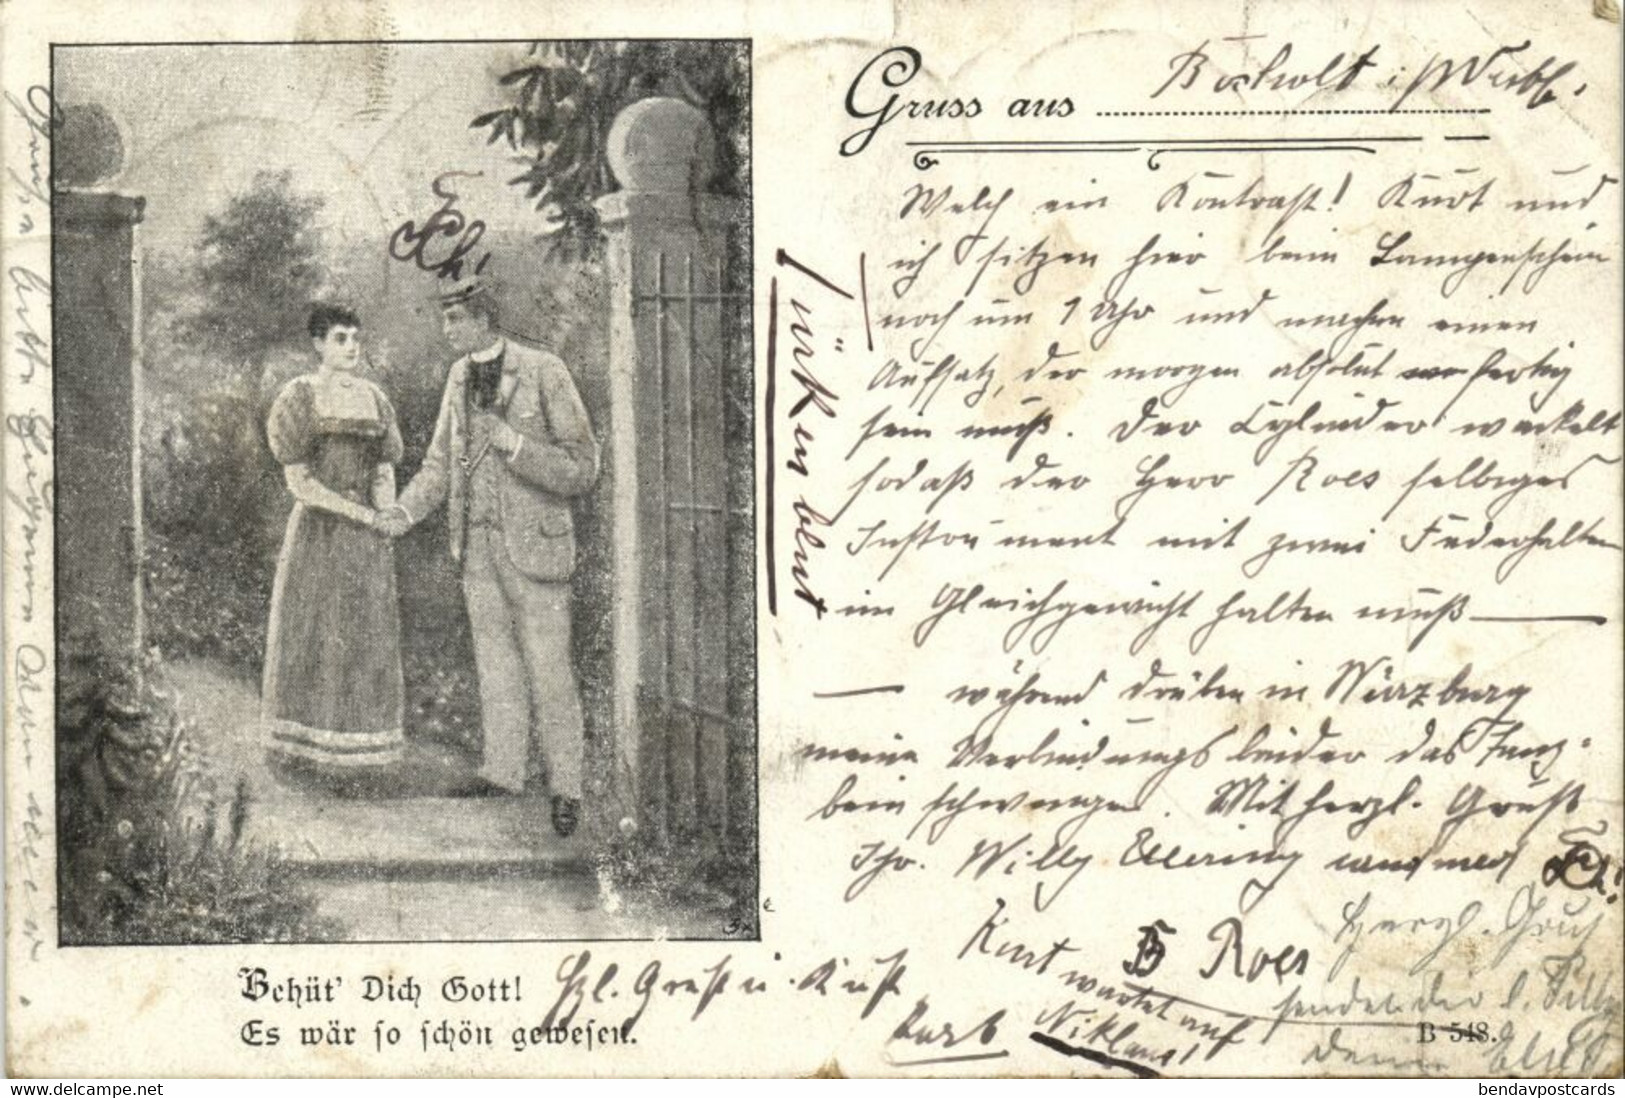 Gruss aus Bocholt i/Westf.
Welch ein Kontrast! Kurt und
ich sitzen hier beim Lampenschein
noch um 1 Uhr und machen einen
Aufsatz, der morgen absolut fertig
sein muß. Der Cylinder wackelt
sodaß der Herr Roes selbiges
Instrument mit zwei Federhaltern
im Gleichgewicht halten muß —
— während drüben in Würzburg
meine Verbindungsbrüder das Tanz-
bein schwingen. Mit herzl. Gruß
Ihr. Willy Ellering
Türkenblut
B Roes
Kurt wartet auf
Niklaus!
Herzl. Gruß
sendet dir d.
Behüt' Dich Gott!
Es wär so schön gewesen.
Hzl. Gruß u. Kuß
B 548.
bendavpostcards